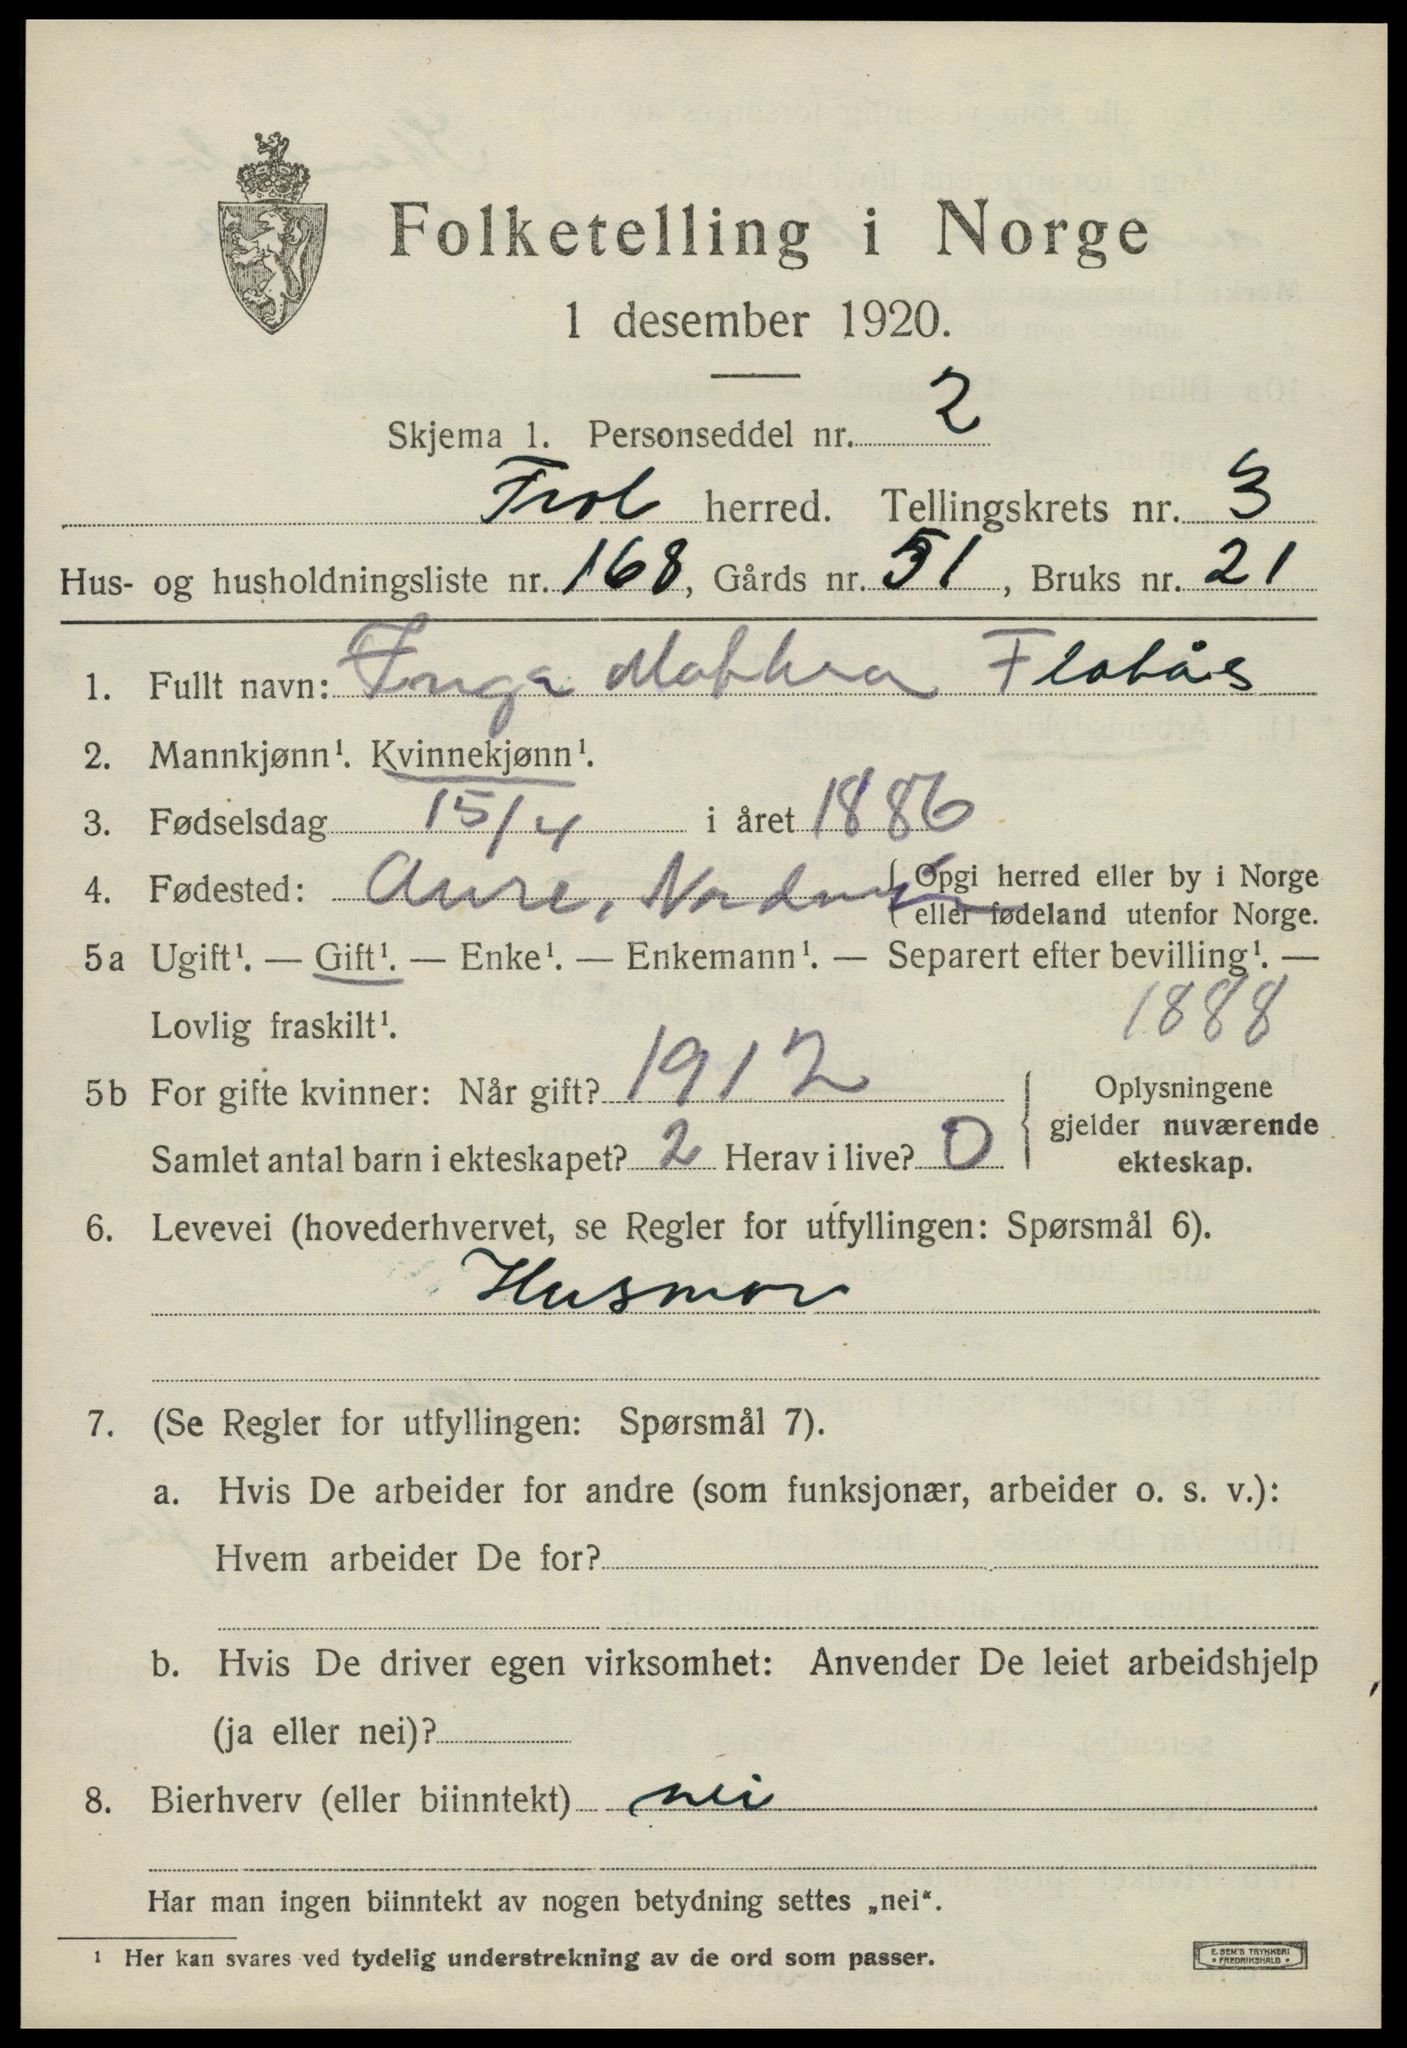 Folketelling i Norge
1 desember 1920.
Skjema 1. Personseddel nr. 2
Frol herred. Tellingskrets nr. 3
Hus- og husholdningsliste nr. 168, Gårds nr. 51, Bruks nr. 21
1. Fullt navn: Inga Flatås
2. Mannkjønn¹. Kvinnekjønn¹.
3. Fødselsdag 15/4 i året 1886
4. Fødested: Aure, Nordmør { Opgi herred eller by i Norge
eller fødeland utenfor Norge.
5a Ugift¹. — Gift¹. — Enke¹. — Enkemann¹. — Separert efter bevilling¹. —
Lovlig fraskilt¹. 1888
5b For gifte kvinner: Når gift? 1912
Samlet antal barn i ekteskapet? 2 Herav i live? 0
Oplysningene
gjelder nuværende
ekteskap.
6. Levevei (hovederhvervet, se Regler for utfyllingen: Spørsmål 6).
Husmor
7. (Se Regler for utfyllingen: Spørsmål 7).
a. Hvis De arbeider for andre (som funksjonær, arbeider o. s. v.):
Hvem arbeider De for?
b. Hvis De driver egen virksomhet: Anvender De leiet arbeidshjelp
(ja eller nei)?
8. Bierhverv (eller biinntekt) nei
Har man ingen biinntekt av nogen betydning settes „nei“.
¹ Her kan svares ved tydelig understrekning av de ord som passer.
E. SEM'S TRYKKERI
FREDRIKSHALD